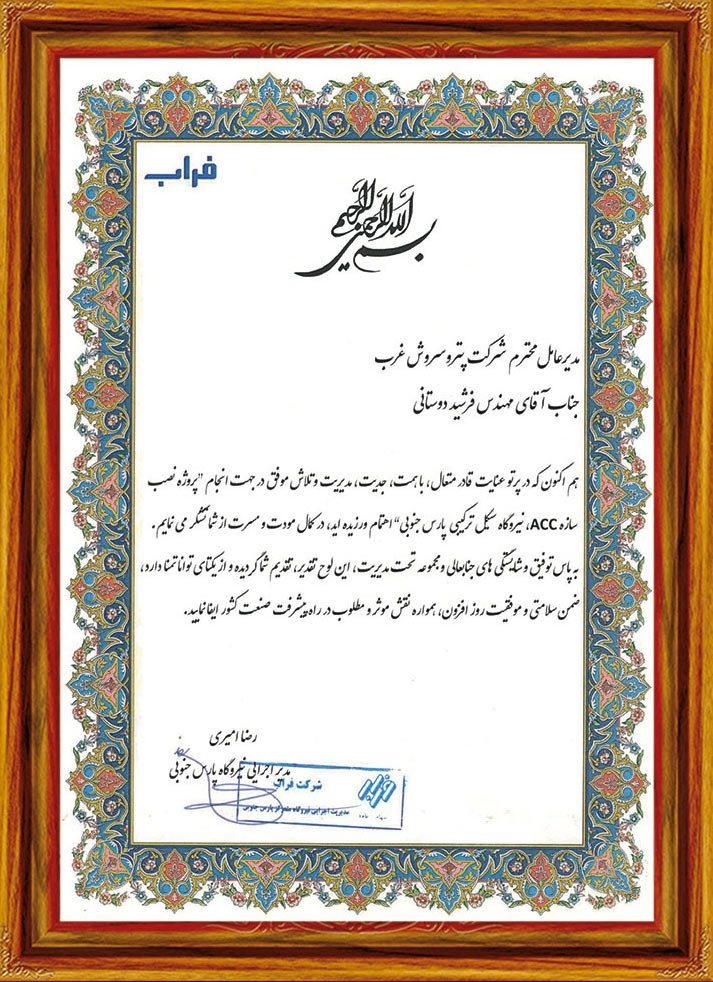 فراب
بسم الله الرحمن الرحیم
مدیرعامل محترم شرکت پترو سروش غرب
جناب آقای مهندس فرشید دوستانی
هم اکنون که در پرتو عنایت قادر متعال، با همت، جدیت، مدیریت و تلاش موفق در جهت انجام "پروژه نصب
سازه ACC، نیروگاه سیکل ترکیبی پارس جنوبی" اهتمام ورزیده اید، در کمال مودت و مسرت از شما تشکر می نمایم.
به پاس توفیق و شایستگی های جنابعالی و مجموعه تحت مدیریت، این لوح تقدیر، تقدیم شما گردیده و از یکتای توانا تمنا دارد،
ضمن سلامتی و موفقیت روز افزون، همواره نقش موثر و مطلوب در راه پیشرفت صنعت کشور ایفا نمایید.
رضا امیری
مدیر اجرایی نیروگاه پارس جنوبی
شرکت فراب
مدیریت اجرایی نیروگاه پارس جنوبی